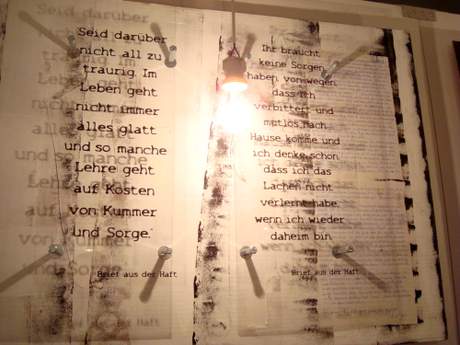 Seid darüber
nicht all zu
traurig. Im
Leben geht
nicht immer
alles glatt
und so manche
Lehre geht
auf Kosten
von Kummer
und Sorge.
Brief aus der Haft
Ihr braucht
keine Sorgen
haben von wegen
dass ich
verbittert und
mutlos nach
Hause komme und
ich denke schon
dass ich das
Lachen nicht
verlernt habe,
wenn ich wieder
daheim bin
Brief aus der Haft